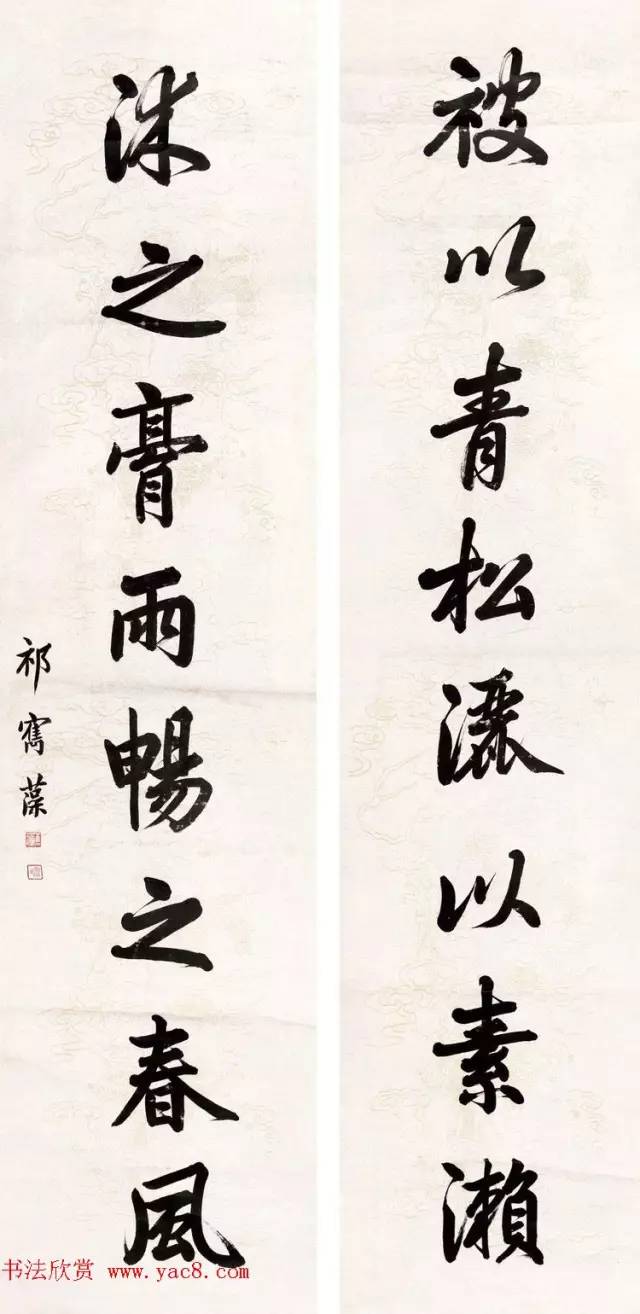 被以青松灑以素瀨
沐之膏雨暢之春風
祁寯藻
书法欣赏 www.yac8.com